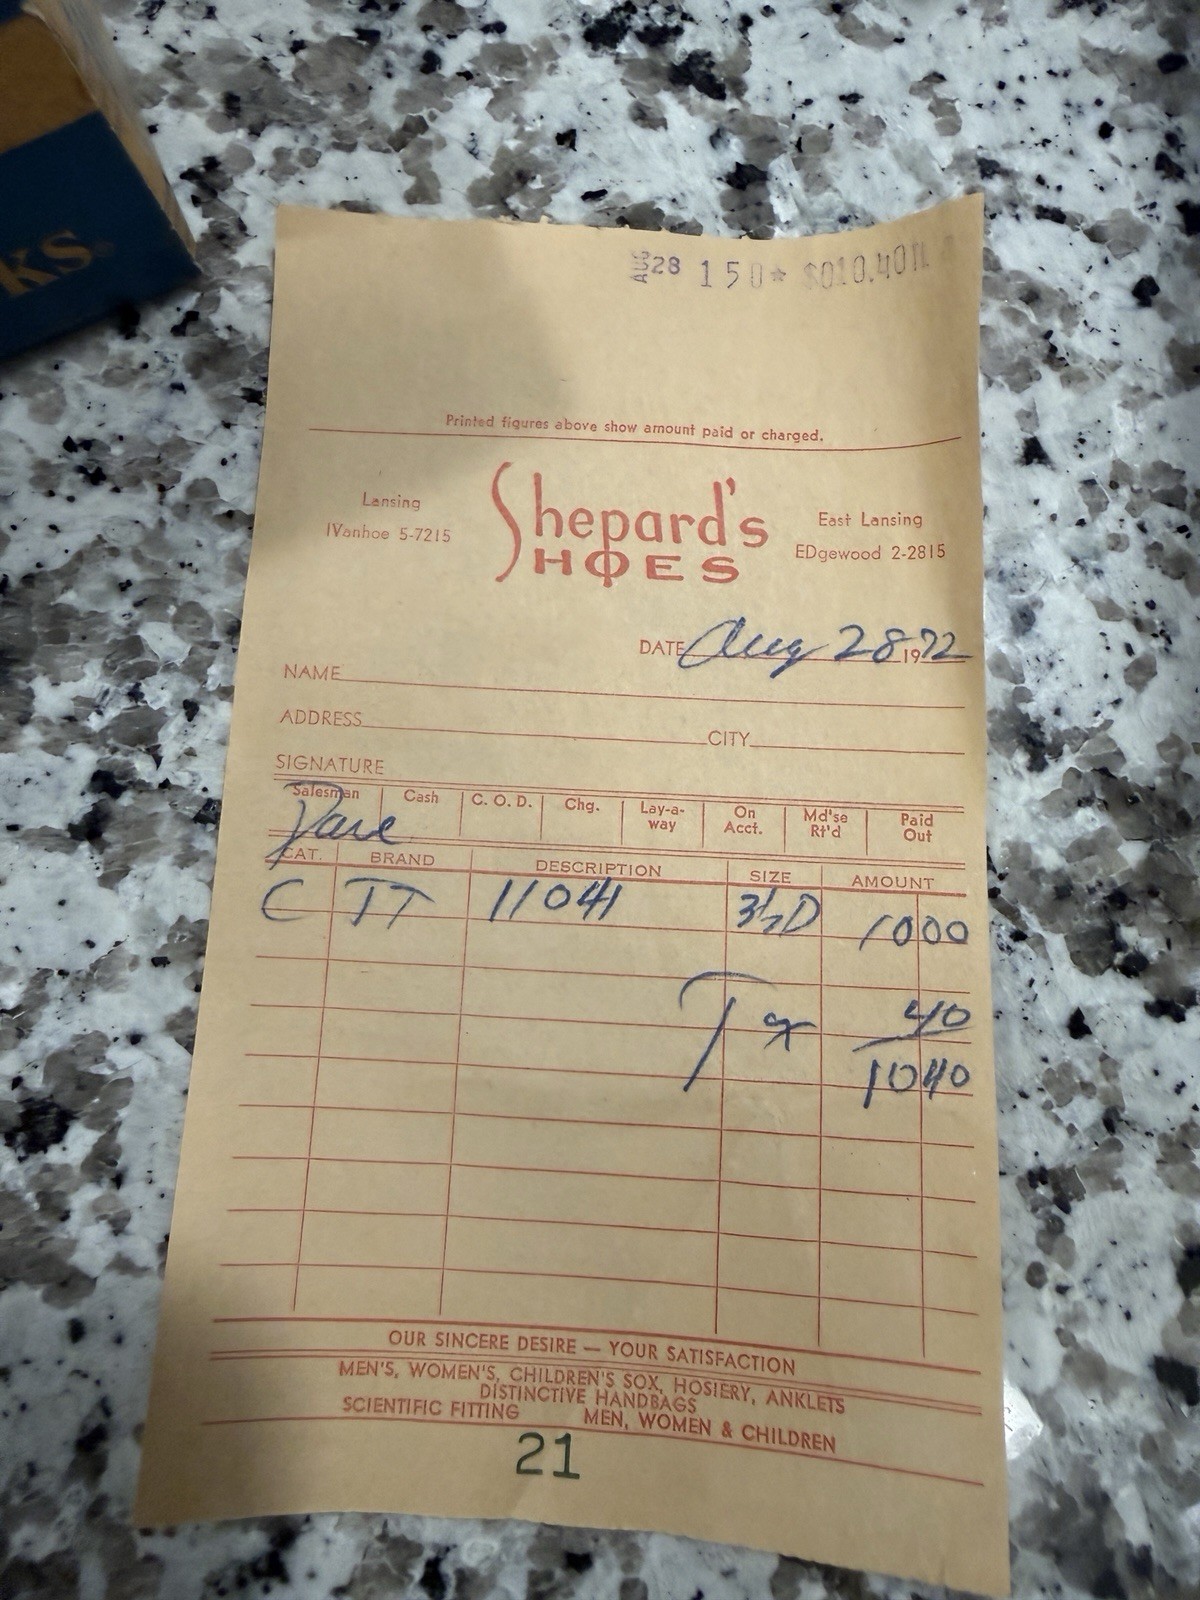 ks®
AUG 28 150* $010.40
Printed figures above show amount paid or charged.
Lansing
IVanhoe 5-7215
Shepard's
SHOES
East Lansing
EDgewood 2-2815
DATE Aug 28 1972
NAME
ADDRESS CITY
SIGNATURE
Salesman Cash C. O. D. Chg. Lay-a-way On Acct. Md'se Rt'd Paid Out
Dave
CAT. BRAND DESCRIPTION SIZE AMOUNT
C TT 11041 3½D 10 00
Tx 40
10 40
OUR SINCERE DESIRE — YOUR SATISFACTION
MEN'S, WOMEN'S, CHILDREN'S SOX, HOSIERY, ANKLETS
DISTINCTIVE HANDBAGS
SCIENTIFIC FITTING MEN, WOMEN & CHILDREN
21